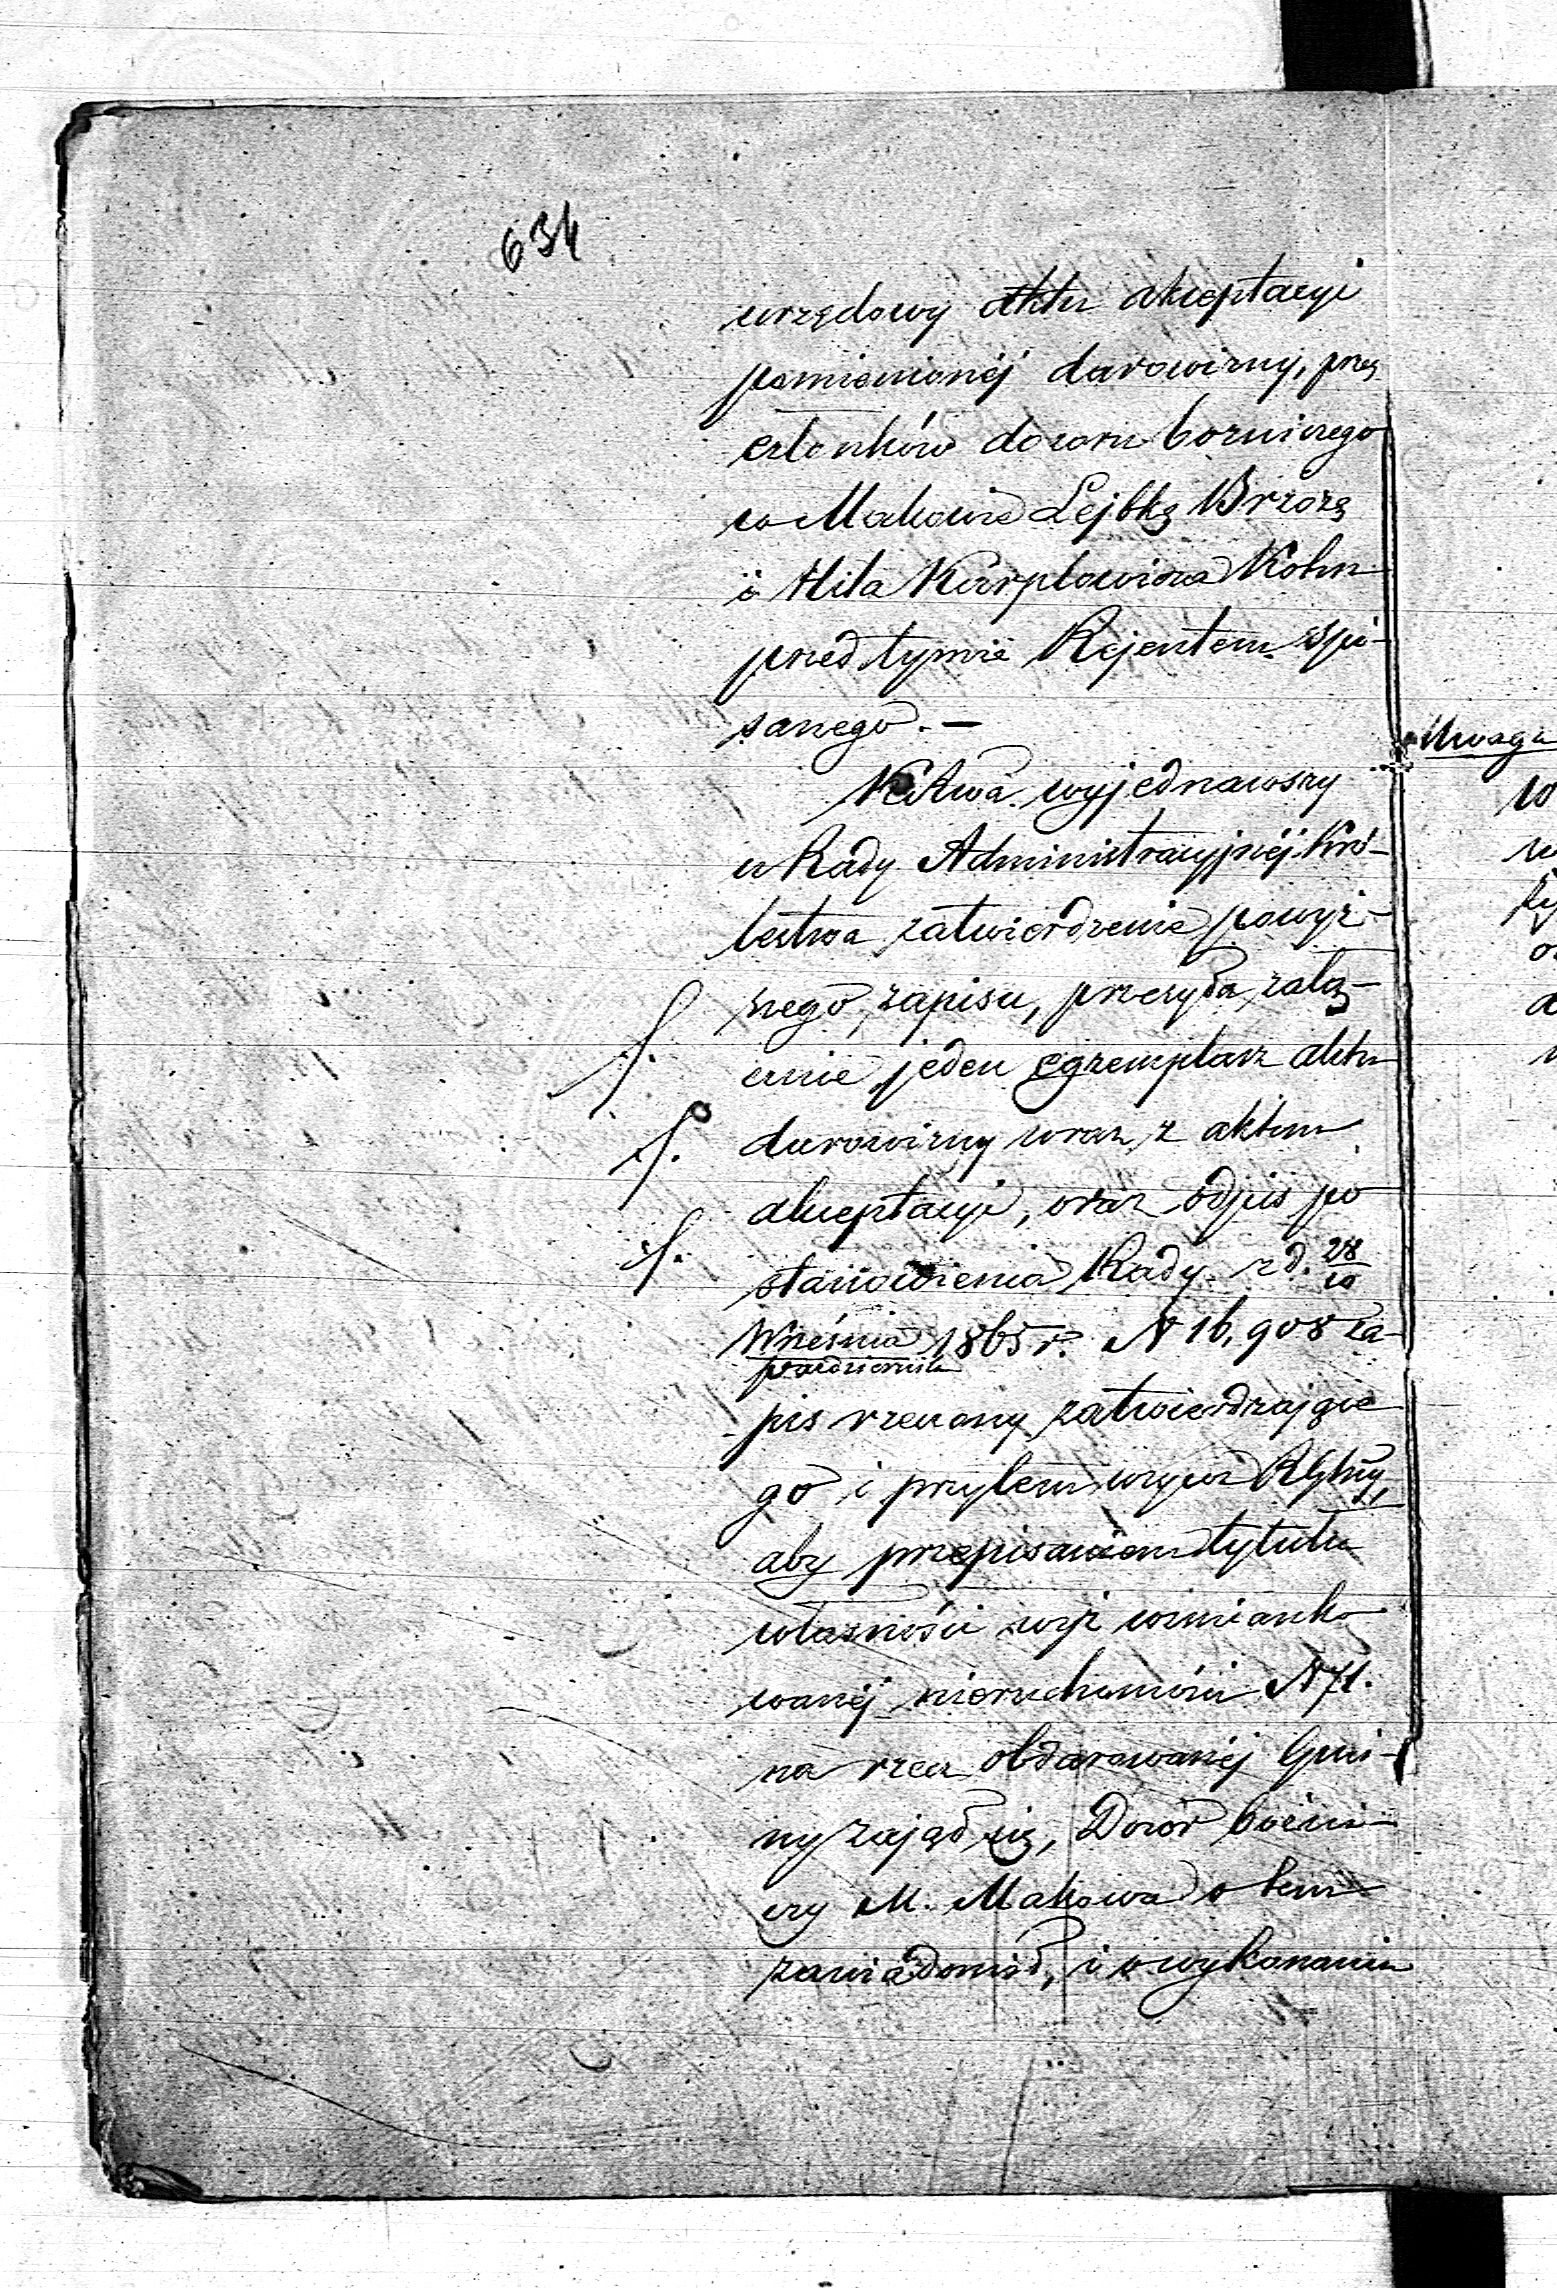 634
urzędowy aktu akceptacyi
pomienionéj darowizny, przez
członków dozoru bożniczego
w Makowie Lejbkę Brzozę
i Hila Karplowicza Kohn
przed tymże Rejentem spi-
sanego. —
K. Rwa. wyjednawszy
u Rady Administracyjnéj Kró-
lestwa zatwierdzenie powyż-
szego zapisu, przesyła załą-
cznie jeden egzemplarz aktu
darowizny wraz z aktem
akceptacyi, oraz odpis po
stanowienia Rady z d. 28/10
Września/Października 1865 r. N 16,908 za-
pis rzeczony zatwierdzające
go i przytem wzywa
aby przepisaniem tytułu
własności wyż wzmianko
wanéj nieruchomości N 71.
na rzecz obdarowanéj Gmi-
ny zajął się, Dozór bóżni-
czy M. Makowa o tem
zawiadomił, i o wykonaniu
Uwaga